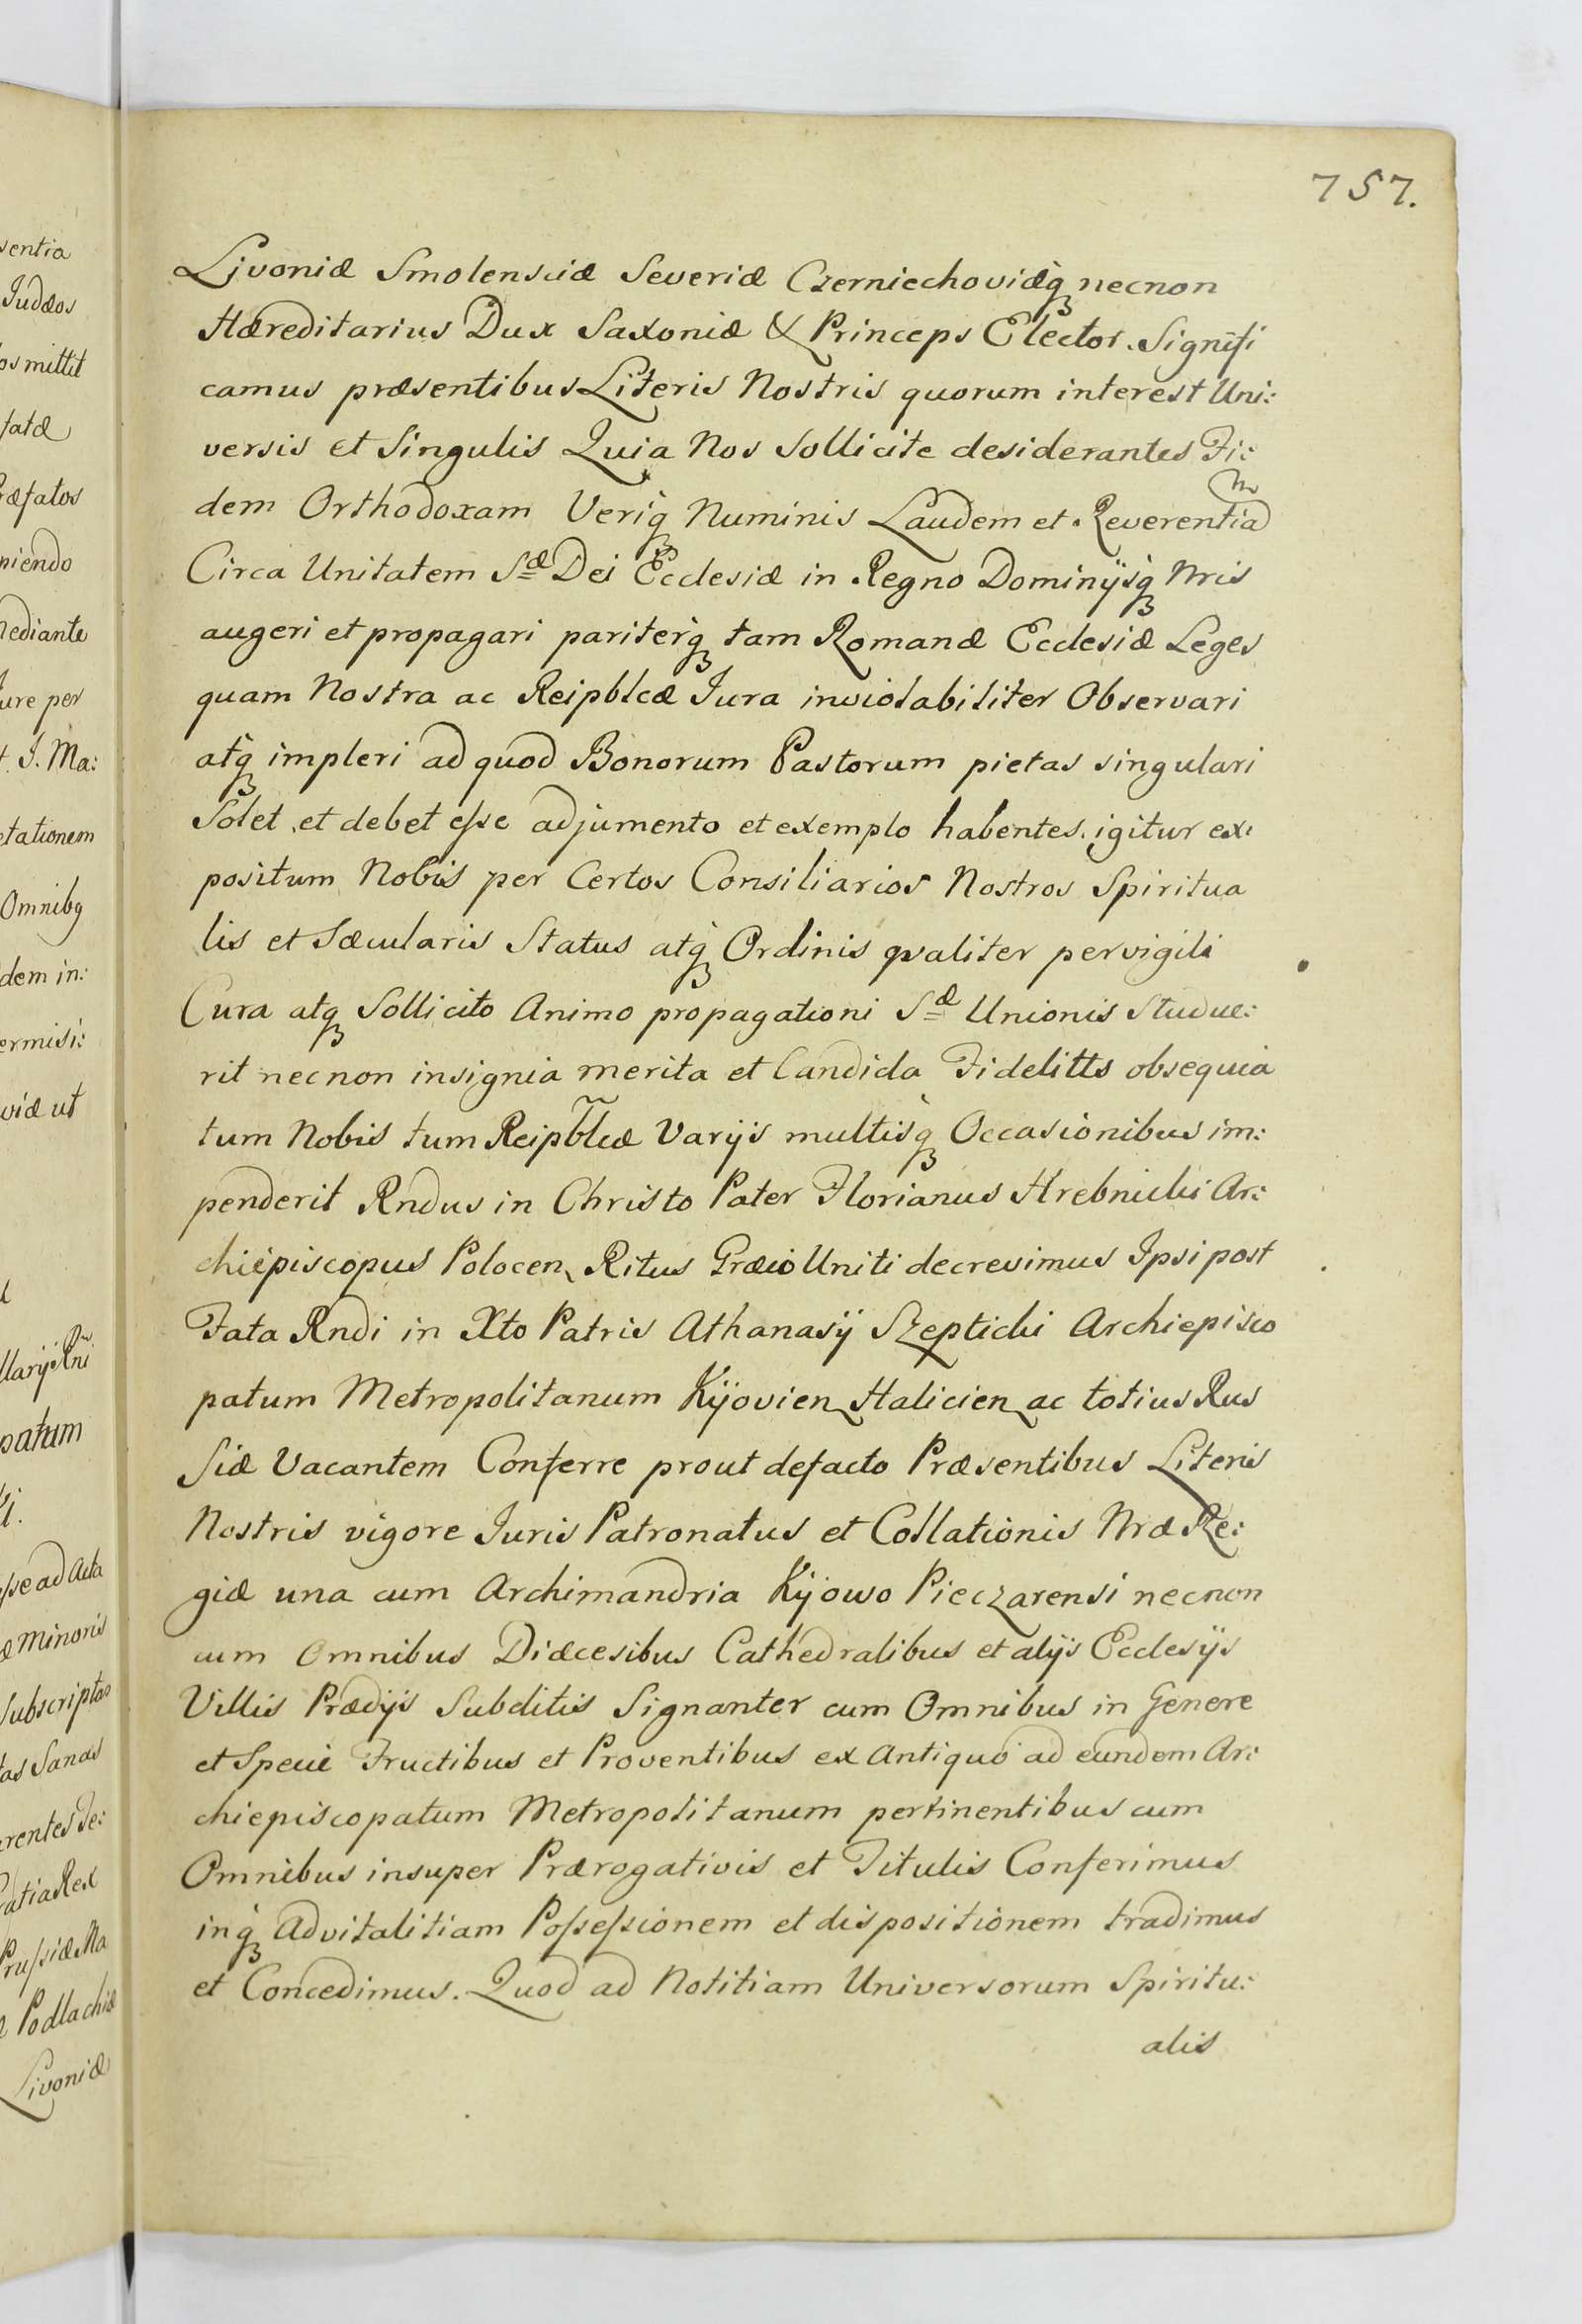 757.
Livoniæ Smolensciæ Severiæ Czerniechoviæq̀ necnon
Hæreditarius Dux Saxoniæ & Princeps Elector. Signifi
camus præsentibus Literis Nostris quorum interest Uni:
versis et Singulis Quia Nos Sollicite desiderantes Fi:
dem Orthodoxam Veriq̀ Numinis Laudem et Reverentiam
Circa Unitatem Sæ Dei Ecclesiæ in Regno Dominijsq̀ Nris
augeri et propagari pariterq̀ tam Romanæ Ecclesiæ Leges
quam Nostra ac Reipblcæ Jura inviolabiliter Observari
atq̀ impleri ad quod Bonorum Pastorum pietas singulari
Solet et debet eſse adjumento et exemplo habentes igitur ex:
positum Nobis per Certos Consiliarios Nostros Spiritua
lis et Sæcularis Status atq̀ Ordinis qvaliter pervigili
Cura atq̀ Sollicito Animo propagationi Sæ Unionis Studue:
rit necnon insignia merita et Candida Fidelitts obsequia
tum Nobis tum Reipblcæ Varijs multisq̀ Occasionibus im:
penderit Rndus in Christo Pater Florianus Hrebnicki Ar:
chiepiscopus Polocen Ritus Græco Uniti decrevimus Ipsi post
Fata Rndi in Xto Patris Athanasij Szepticki Archiepisco
patum Metropolitanum Kijovien Halicien ac totius Rus
Siæ Vacantem Conferre prout defacto Præsentibus Literis
Nostris vigore Juris Patronatus et Collationis Nræ Re:
giæ una cum Archimandria Kijowo Pieczarensi necnon
cum Omnibus Diæcesibus Cathedralibus et alijs Ecclesijs
Villis Prædijs Subditis Signanter cum Omnibus in Genere
et Specie Fructibus et Proventibus ex Antiquo ad eundem Ar:
chiepiscopatum Metropolitanum pertinentibus cum
Omnibus insuper Prærogativis et Titulis Conferimus
inq̀ Advitalitiam Poſseſsionem et dispositionem tradimus
et Concedimus. Quod ad Notitiam Universorum Spiritu:
alis